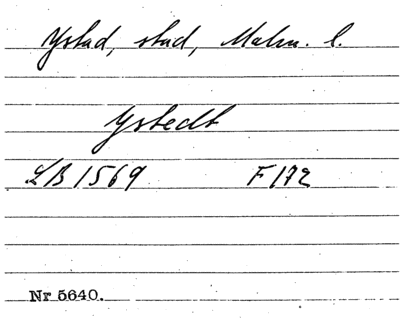 Ystad, stad, Malm. l.
Ystedt
LB 1569 F 172
Nr 5640.